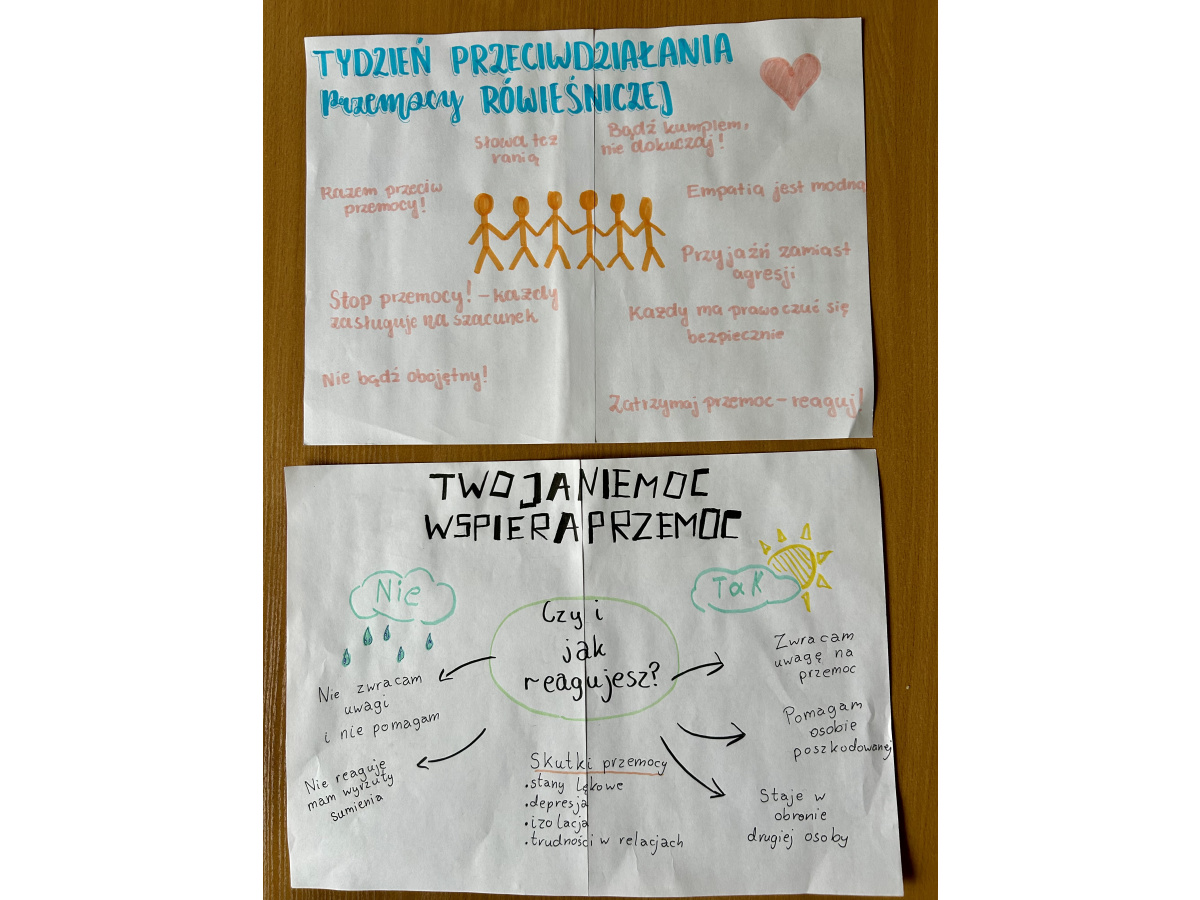 TYDZIEŃ PRZECIWDZIAŁANIA
Przemocy RÓWIEŚNICZEJ
Słowa też
ranią
Bądź kumplem,
nie dokuczaj!
Razem przeciw
przemocy!
Empatia jest modna
Przyjaźń zamiast
agresji
Stop przemocy! – każdy
zasługuje na szacunek
Każdy ma prawo czuć się
bezpiecznie
Nie bądź obojętny!
Zatrzymaj przemoc – reaguj!
TWOJA NIEMOC
WSPIERA PRZEMOC
Nie
Tak
Czy i
jak
reagujesz?
Nie zwracam
uwagi
i nie pomagam
Nie reaguję
mam wyrzuty
sumienia
Zwracam
uwagę na
przemoc
Pomagam
osobie
poszkodowanej
Staje w
obronie
drugiej osoby
Skutki przemocy
• stany lękowe
• depresja
• izolacja
• trudności w relacjach